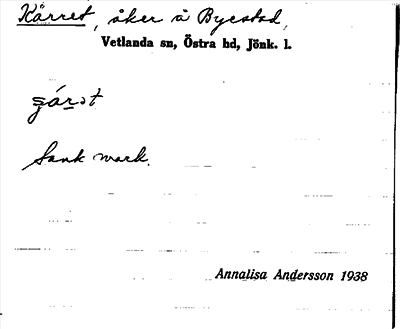 Kärret, åker å Byestad,
Vetlanda sn, Östra hd, Jönk. l.
Sank mark.
Annalisa Andersson 1938